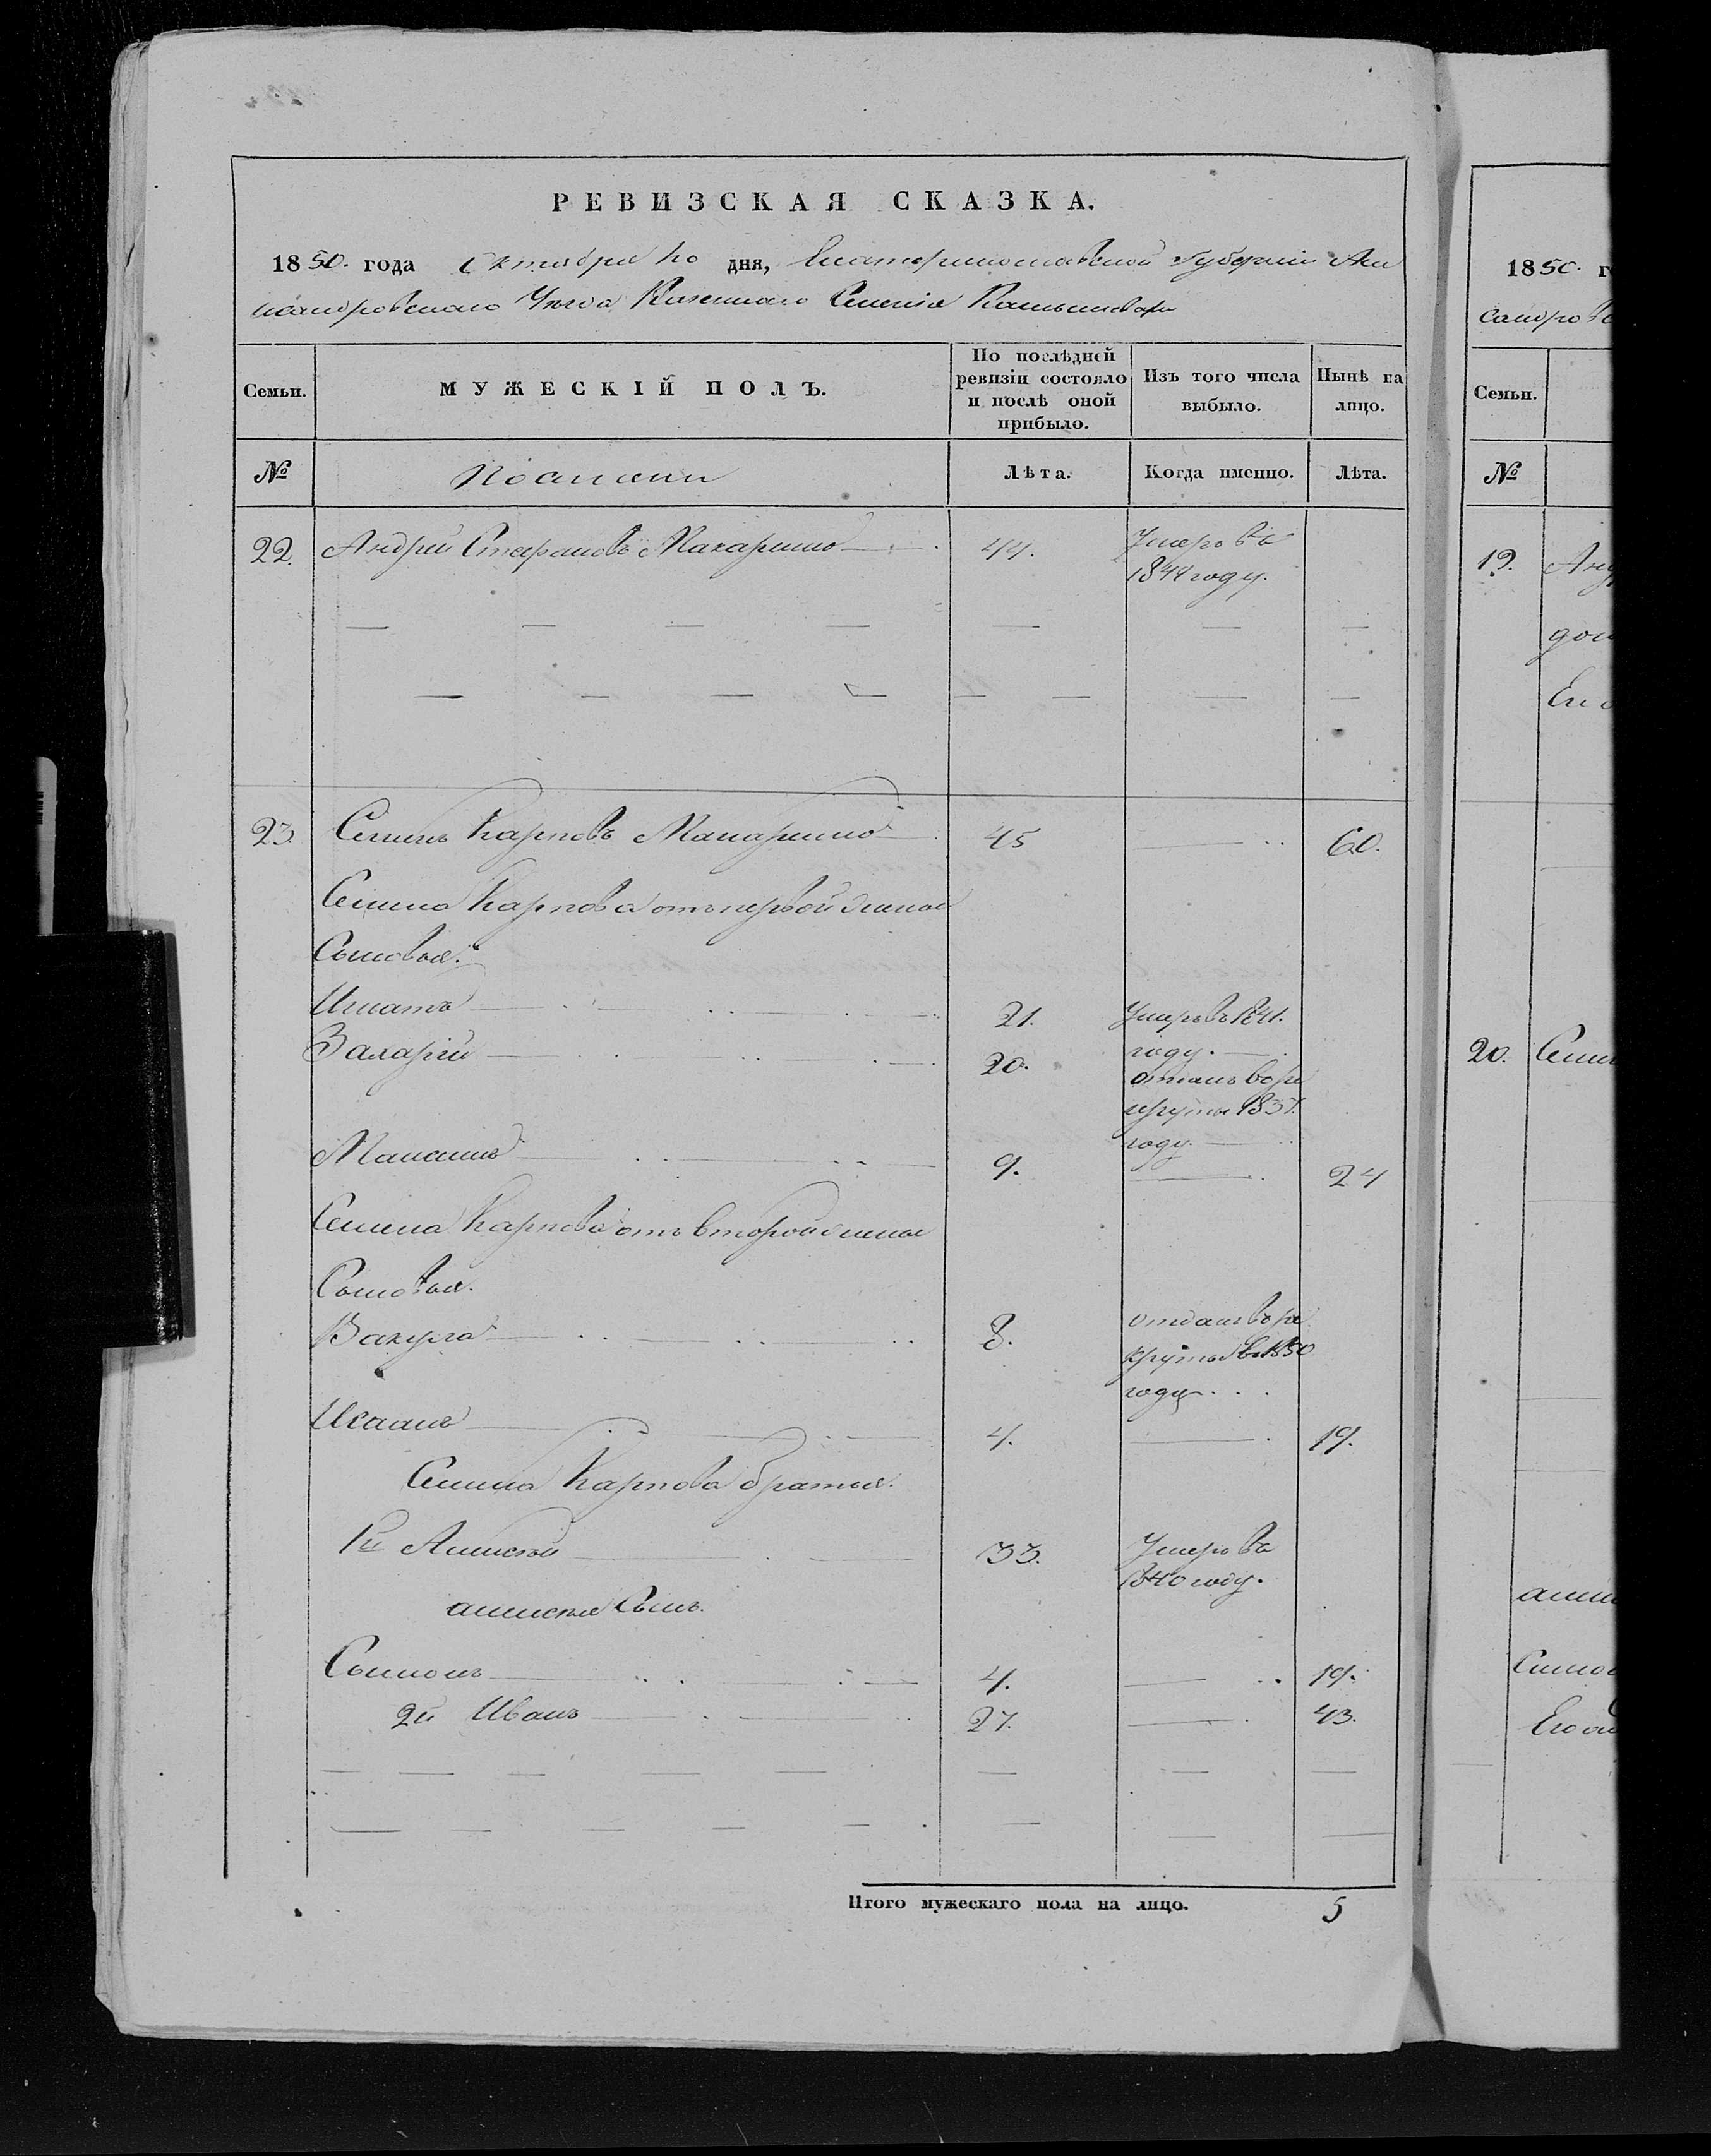 РЕВИЗСКАЯ СКАЗКА.
1850. года Октября 10 дня, Екатеринославской Губернии Алек
сандровскаго Уезда Казеннаго Селенія
Семьи.
МУЖЕСКІЙ ПОЛЪ.
По послѣдней ревизіи состояло и послѣ оной прибыло.
Изъ того числа выбыло.
Нынѣ на лицо.
№
Лѣта.
Когда именно.
Лѣта.
22. Андрей Стефановъ Макаринъ 44. Умеръ въ
184 году.
23. Семенъ Карповъ Макаринъ 45 60.
Семена Карпова отъ первой жены
Сыновья.
Игнатъ 21. Умеръ въ 1841.
году.
20. отданъ въ ре
круты 1837.
году.
9. 24
Семена Карпова отъ второй жены
Сыновья.
Вакула 8. отданъ въ ре
круты въ 1850
году
Исаакъ 4. 19.
Семена Карпова братья.
1й Алексей 33. Умеръ въ
1840 году.
алексея Сынъ.
4. 19.
2й Иванъ 27. 43.
Итого мужескаго пола на лицо. 5
1850. г
сандровс
Семьи.
№
19. Анд
20. Семе